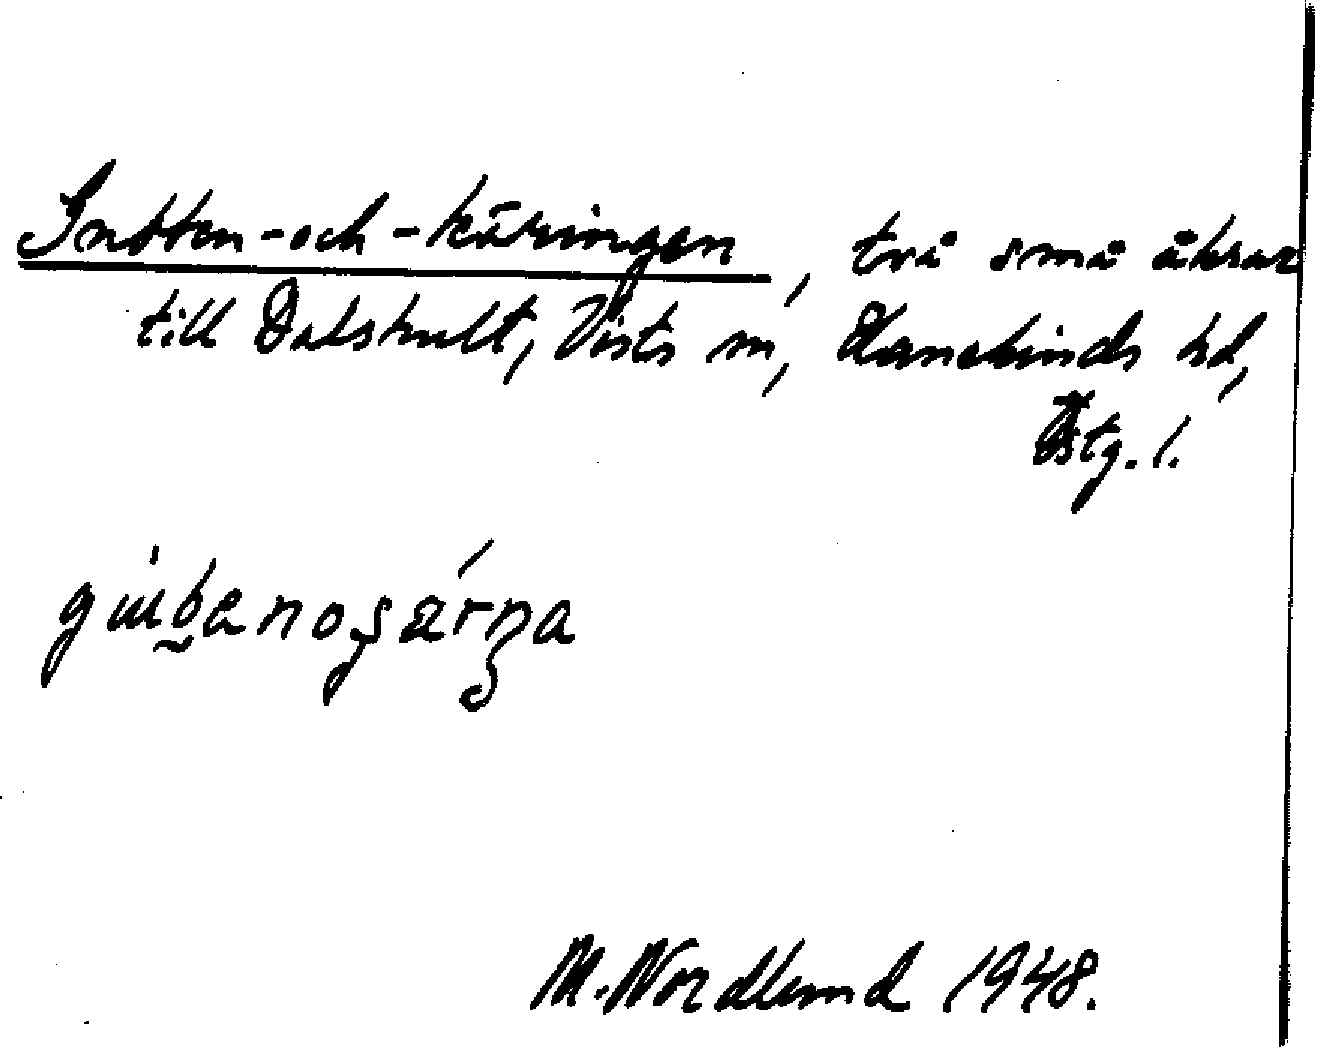 Gubben-och-käringen, två små åkrar
till Dalshult, Vists sn, Hanekinds hd,
Östg. l.
M. Nordlund 1948.